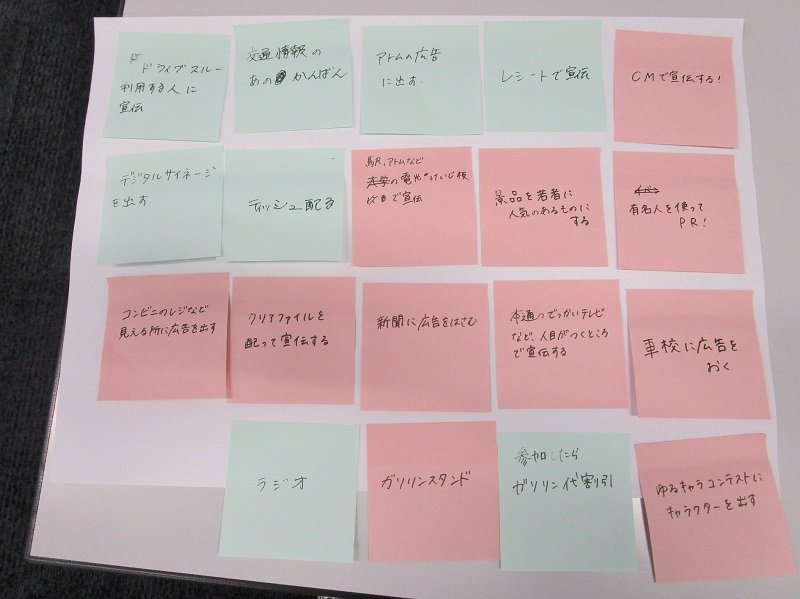 ドライブスルー
利用する人に
宣伝
交通情報の
あの かんばん
アトムの広告
に出す.
レシートで宣伝
CMで宣伝する!
デジタルサイネージ
を出す.
ティッシュ配る
駅,アトムなど
の電光けいじ板
で宣伝
景品を若者に
人気のあるものに
する
有名人を使って
PR!
コンビニのレジなど
見える所に広告を出す
クリアファイルを
配って宣伝する
新聞に広告をはさむ
本通のでっかいテレビ
など、人目がつくところ
で宣伝する
車校に広告を
おく
ラジオ
ガソリンスタンド
参加したら
ガソリン代割引
ゆるキャラコンテストに
キャラクターを出す